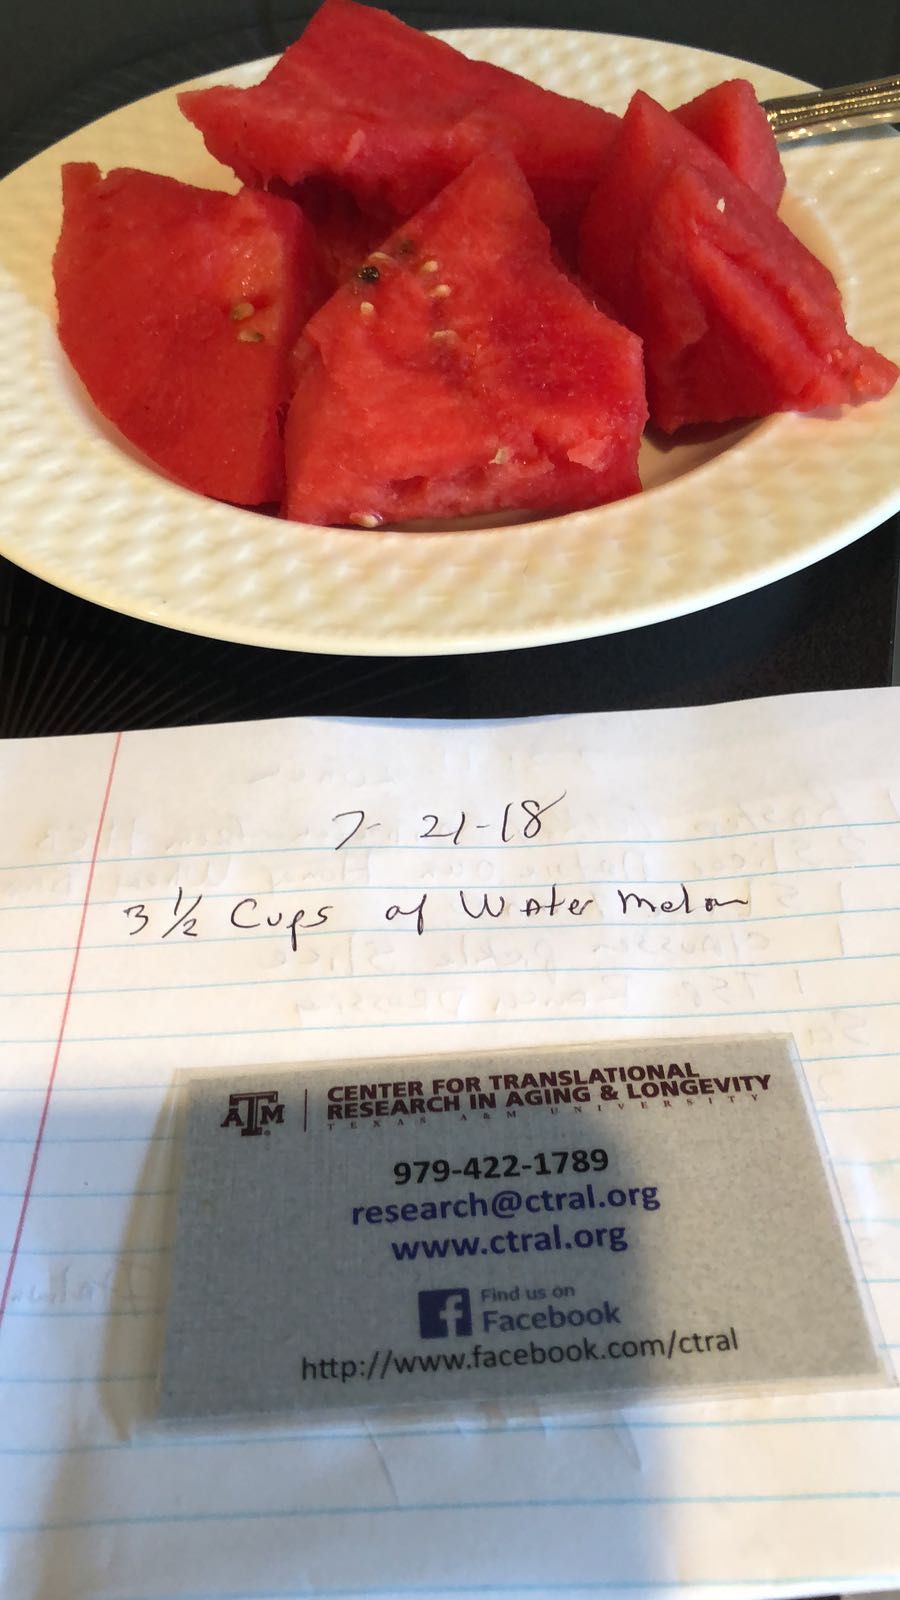 7-21-18
3 ½ Cups of Water melon
ATM
CENTER FOR TRANSLATIONAL
RESEARCH IN AGING & LONGEVITY
TEXAS A&M UNIVERSITY
979-422-1789
research@ctral.org
www.ctral.org
f Find us on
Facebook
http://www.facebook.com/ctral